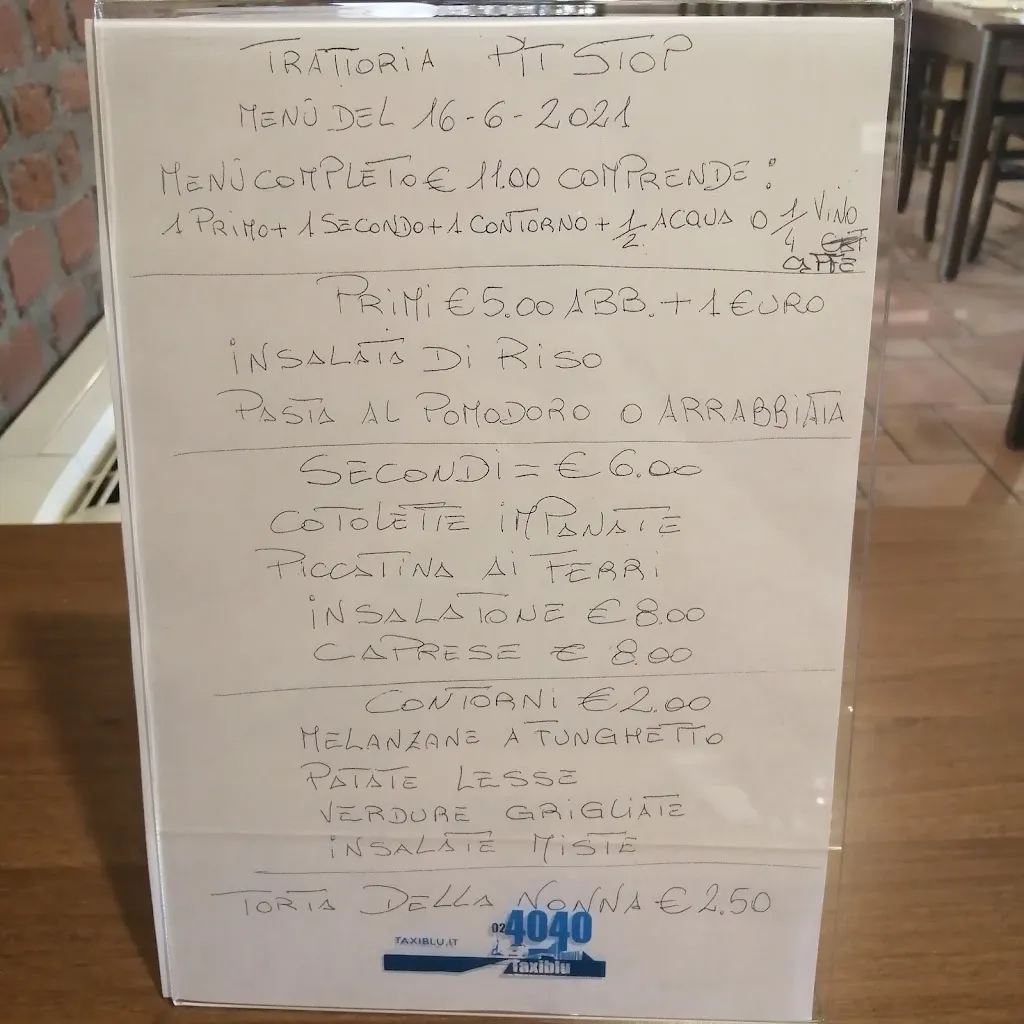 TRATTORIA PIT STOP
MENÙ DEL 16-6-2021
MENÙ COMPLETO € 11.00 COMPRENDE:
1 PRIMO + 1 SECONDO + 1 CONTORNO + 1/2 ACQUA O 1/4 VINO
CAFFÈ
PRIMI € 5.00 ABB. + 1 EURO
INSALATA DI RISO
PASTA AL POMODORO O ARRABBIATA
SECONDI = € 6.00
COTOLETTE IMPANATE
PICCATINA AI FERRI
INSALATONE € 8.00
CAPRESE € 8.00
CONTORNI € 2.00
MELANZANE A FUNGHETTO
PATATE LESSE
VERDURE GRIGLIATE
INSALATE MISTE
TORTA DELLA NONNA € 2.50
TAXIBLU.IT 02 4040
Taxiblu